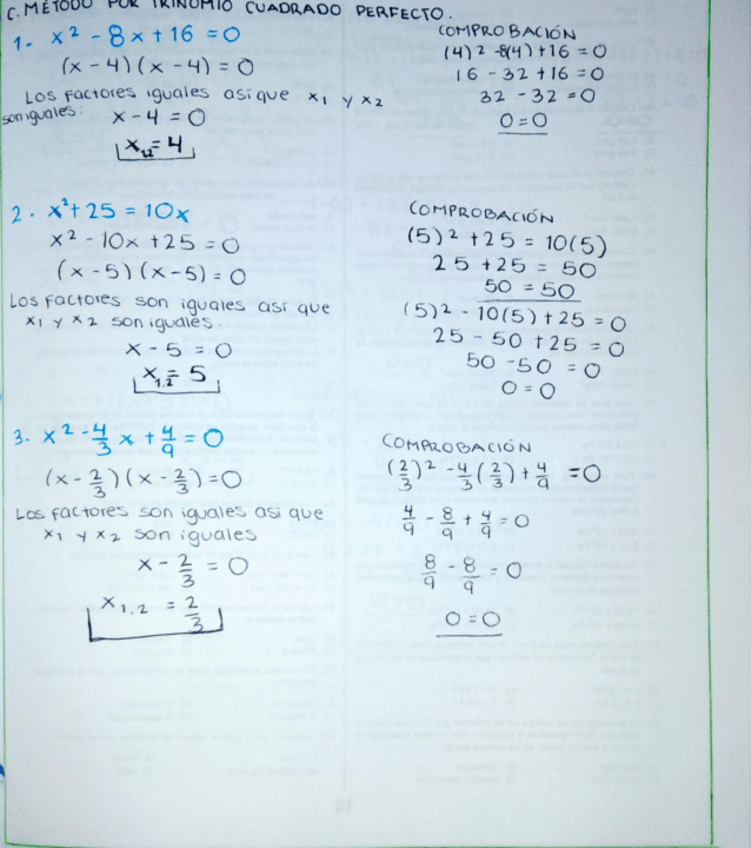 C. MÉTODO POR TRINOMIO CUADRADO PERFECTO.
1. x² - 8x + 16 = 0
(x - 4)(x - 4) = 0
Los factores iguales así que x₁ y x₂
son iguales:
x - 4 = 0
x₁,₂ = 4
COMPROBACIÓN
(4)² - 8(4) + 16 = 0
16 - 32 + 16 = 0
32 - 32 = 0
0 = 0
2. x² + 25 = 10x
x² - 10x + 25 = 0
(x - 5)(x - 5) = 0
Los factores son iguales así que
x₁ y x₂ son iguales.
x - 5 = 0
x₁,₂ = 5
COMPROBACIÓN
(5)² + 25 = 10(5)
25 + 25 = 50
50 = 50
(5)² - 10(5) + 25 = 0
25 - 50 + 25 = 0
50 - 50 = 0
0 = 0
3. x² - 4/3 x + 4/9 = 0
(x - 2/3)(x - 2/3) = 0
Los factores son iguales así que
x₁ y x₂ son iguales
x - 2/3 = 0
x₁,₂ = 2/3
COMPROBACIÓN
(2/3)² - 4/3(2/3) + 4/9 = 0
4/9 - 8/9 + 4/9 = 0
8/9 - 8/9 = 0
0 = 0